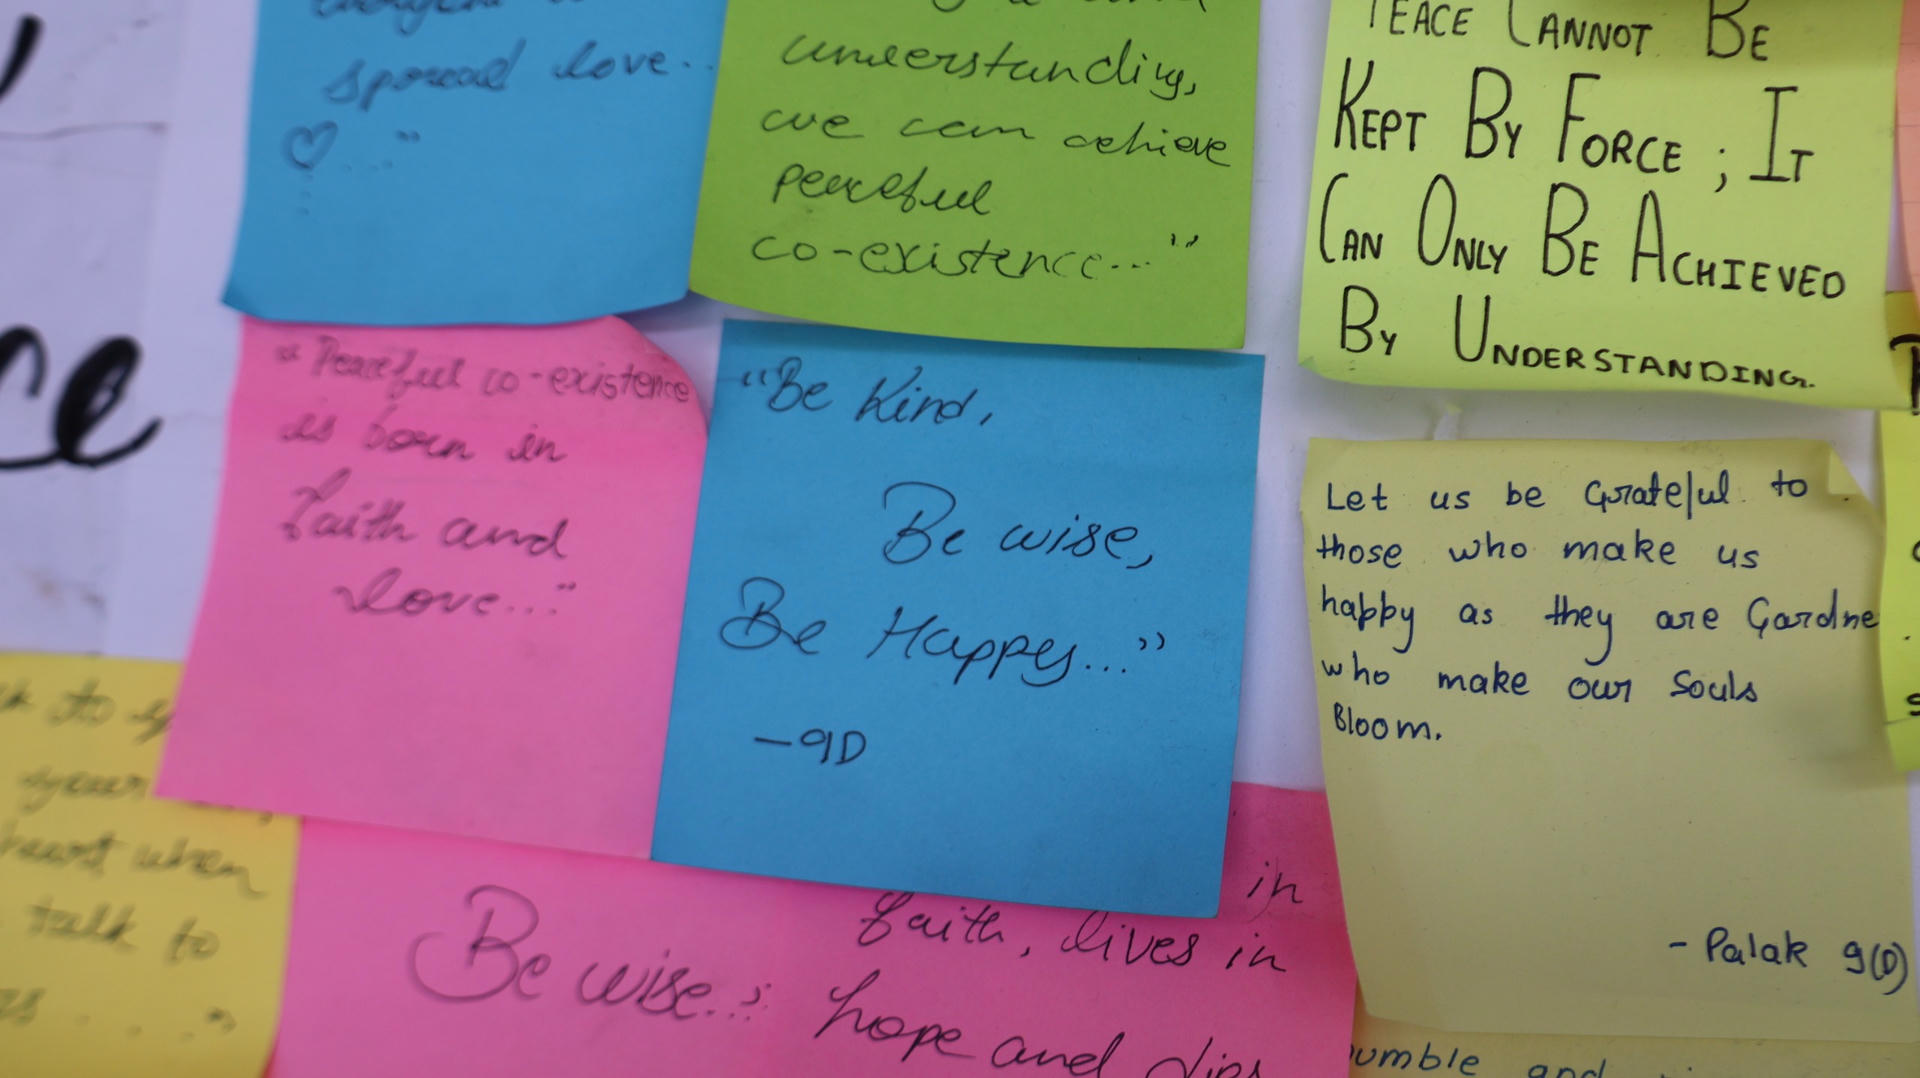 spread love..
♡...."
understanding,
we can achieve
peaceful
co-existence..."
PEACE CANNOT BE
KEPT BY FORCE ; IT
CAN ONLY BE ACHIEVED
BY UNDERSTANDING.
"Peaceful co-existence
is born in
faith and
love..."
"Be Kind,
Be wise,
Be Happy..."
-9D
Let us be Grateful to
those who make us
happy as they are Gardne
who make our Souls
Bloom.
- Palak 9(D)
ce
to
your
heart when
talk to
Be wise..
in
faith, lives in
hope and
umble and